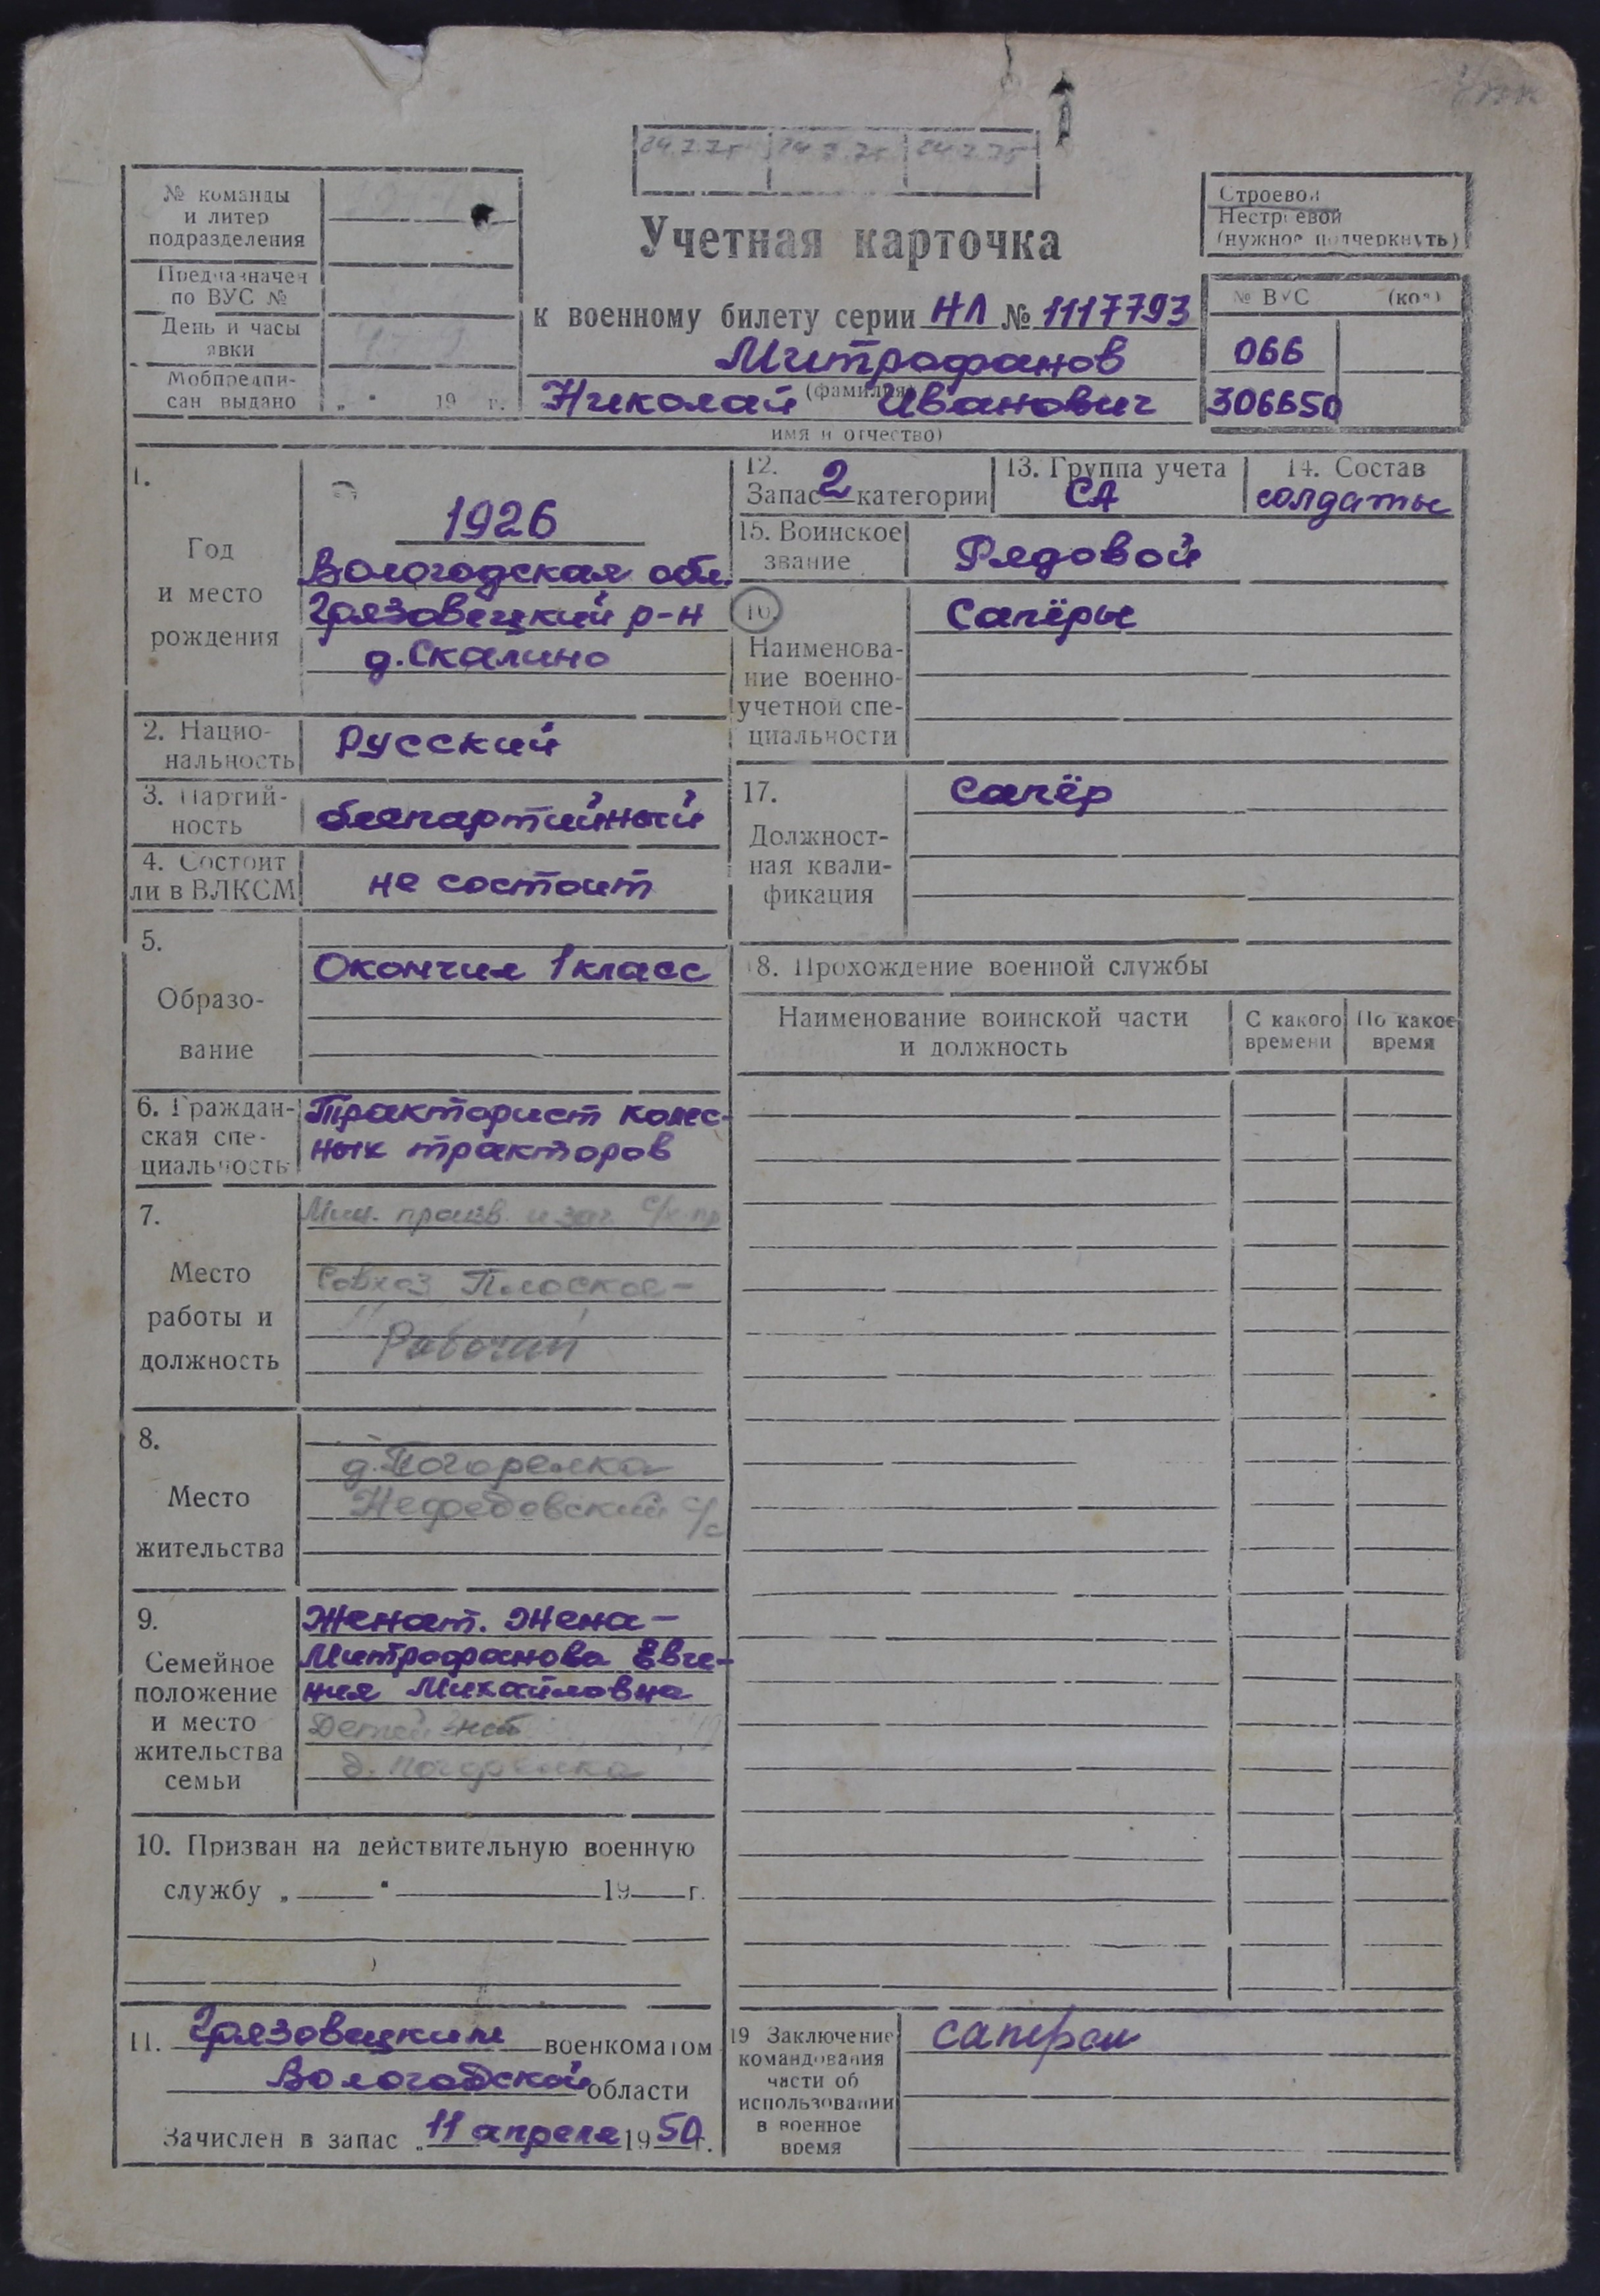 24.7.75 24.7.75 24.7.75
№ команды
и литер
подразделения
Предназначен
по ВУС №
День и часы
явки
Мобпредпи-
сан выдано „ " 19 г.
Учетная карточка
к военному билету серии НЛ № 1117793
Митрофанов
(фамилия)
Николай Иванович
имя и отчество)
Строевой
Нестроевой
(нужное подчеркнуть)
№ ВУС (код)
066
306650
1.
Год
и место
рождения
1926
Вологодская обл.
Грязовецкий р-н
д. Скалино
2. Нацио-
нальность
Русский
3. Партий-
ность
беспартийный
4. Состоит
ли в ВЛКСМ
не состоит
5.
Образо-
вание
Окончил 1 класс
6. Граждан-
ская спе-
циальность
Тракторист колес-
ных тракторов
7.
Место
работы и
должность
Мин. произв. и заг. с/х пр
Совхоз Плоское-
Рабочий
8.
Место
жительства
д. Погорелка
Нефедовский с/с
9.
Семейное
положение
и место
жительства
семьи
Женат. Жена-
Митрофанова Евге-
ния Михайловна
Детей нет
д. Погорелка
10. Призван на действительную военную
службу „ " 19 г.
11. Грязовецким военкоматом
Вологодской области
Зачислен в запас „11 апреля 1950 г.
12.
Запас 2 категории
13. Группа учета
СА
14. Состав
солдаты
15. Воинское
звание
Рядовой
16.
Наименова-
ние военно-
учетной спе-
циальности
Сапёры
17.
Должност-
ная квали-
фикация
Сапёр
18. Прохождение военной службы
Наименование воинской части
и должность
С какого
времени
По какое
время
19 Заключение
командования
части об
использовании
в военное
время
сапером